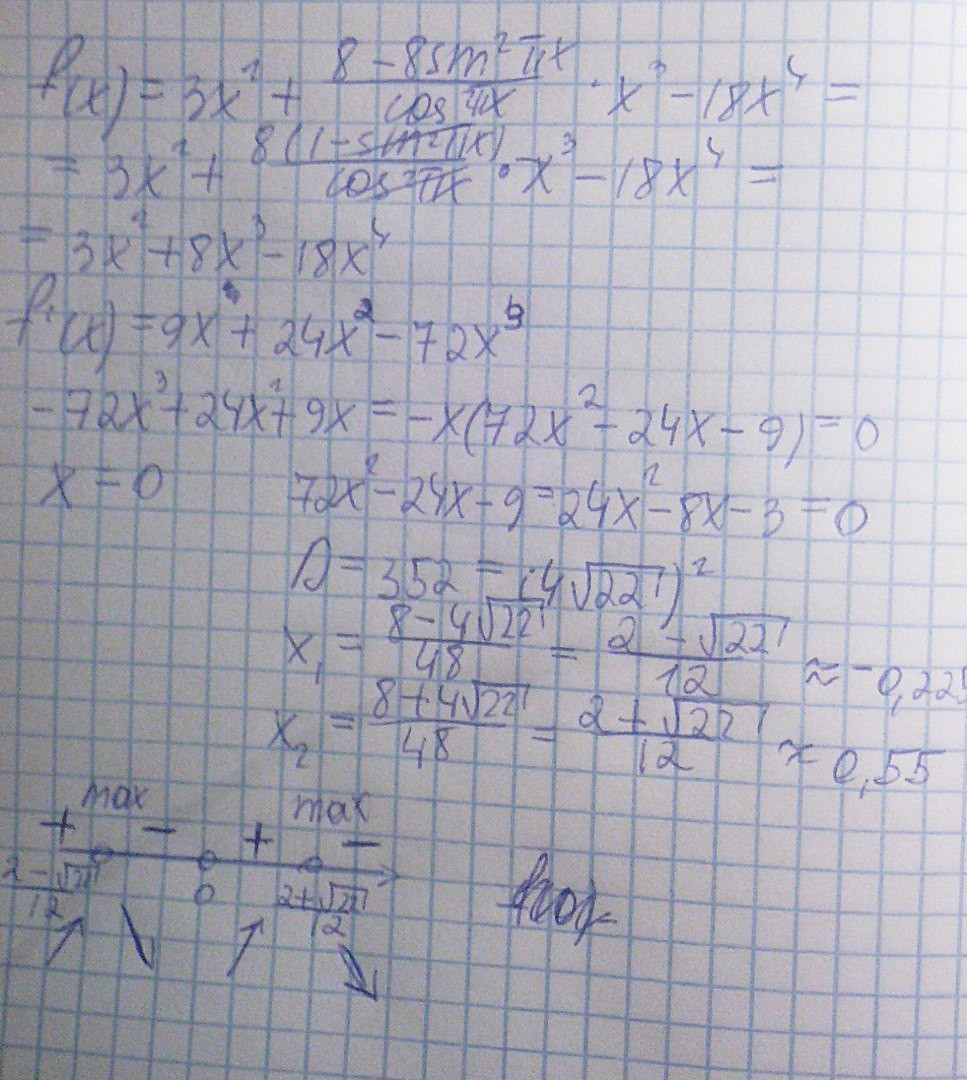 f(x) = 3x² + (8 - 8sin²πx)/(cos²πx) · x³ - 18x⁴ =
= 3x² + 8(1 - sin²πx)/(cos²πx) · x³ - 18x⁴ =
= 3x² + 8x³ - 18x⁴
f'(x) = 9x + 24x² - 72x³
-72x³ + 24x² + 9x = -x(72x² - 24x - 9) = 0
x = 0 72x² - 24x - 9 = 24x² - 8x - 3 = 0
D = 352 = (4√22)²
x₁ = (8 - 4√22)/48 = (2 - √22)/12 ≈ -0,225
x₂ = (8 + 4√22)/48 = (2 + √22)/12 ≈ 0,55
max max
+ - + -
(2 - √22)/12 0 (2 + √22)/12